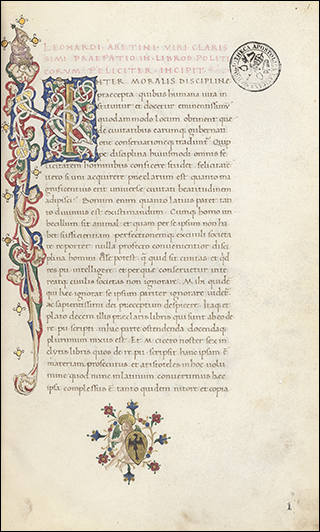 LEONARDI ARETINI VIRI CLARIS
SIMI PRAEFATIO IN LIBROS POLITI
CORVM FELICITER INCIPIT
INTER MORALIS DISCIPLINE
praecepta quibus humana vita in
stituitur et docetur eminentissimum
quodam modo locum obtinent que
de civitatibus earumque gubernati
one conservationeque traduntur
disciplina huiusmodi omnis fe
licitatem hominibus conficere studet felicitate
vero si uni acquirere praeclarum est quanto ma
gnificentius erit universe civitati beatitudinem
adipisci Bonum enim quanto latius patet tan
to divinius est existimandum Cumque homo im
becillum sit animal et quam per se ipsum non ha
bet sufficientiam perfectionemque ex civili societa
te reportet nulla profecto convenientior disci
plina homini esse potest quam quid sit civitas et quid
res pu intelligere et per que conservetur inte
reatque civilis societas non ignorare Mihi quidem
qui hec ignorat se ipsum pariter ignorare videtur
ac sapientissimi dei preceptum despicere Itaque et
plato decem illis preclaris libris qui sunt ab eo de
re pu scripti in hac parte ostendenda docendaque
plurimum nixus est Et M cicero noster sex in
clytis libris quos de re pu scripsit hanc ipsam est
materiam prosecutus et aristoteles in hoc volu
mine quod nunc in latinum convertimus hec
ipsa complexus est tanto quidem nitore et copia
1